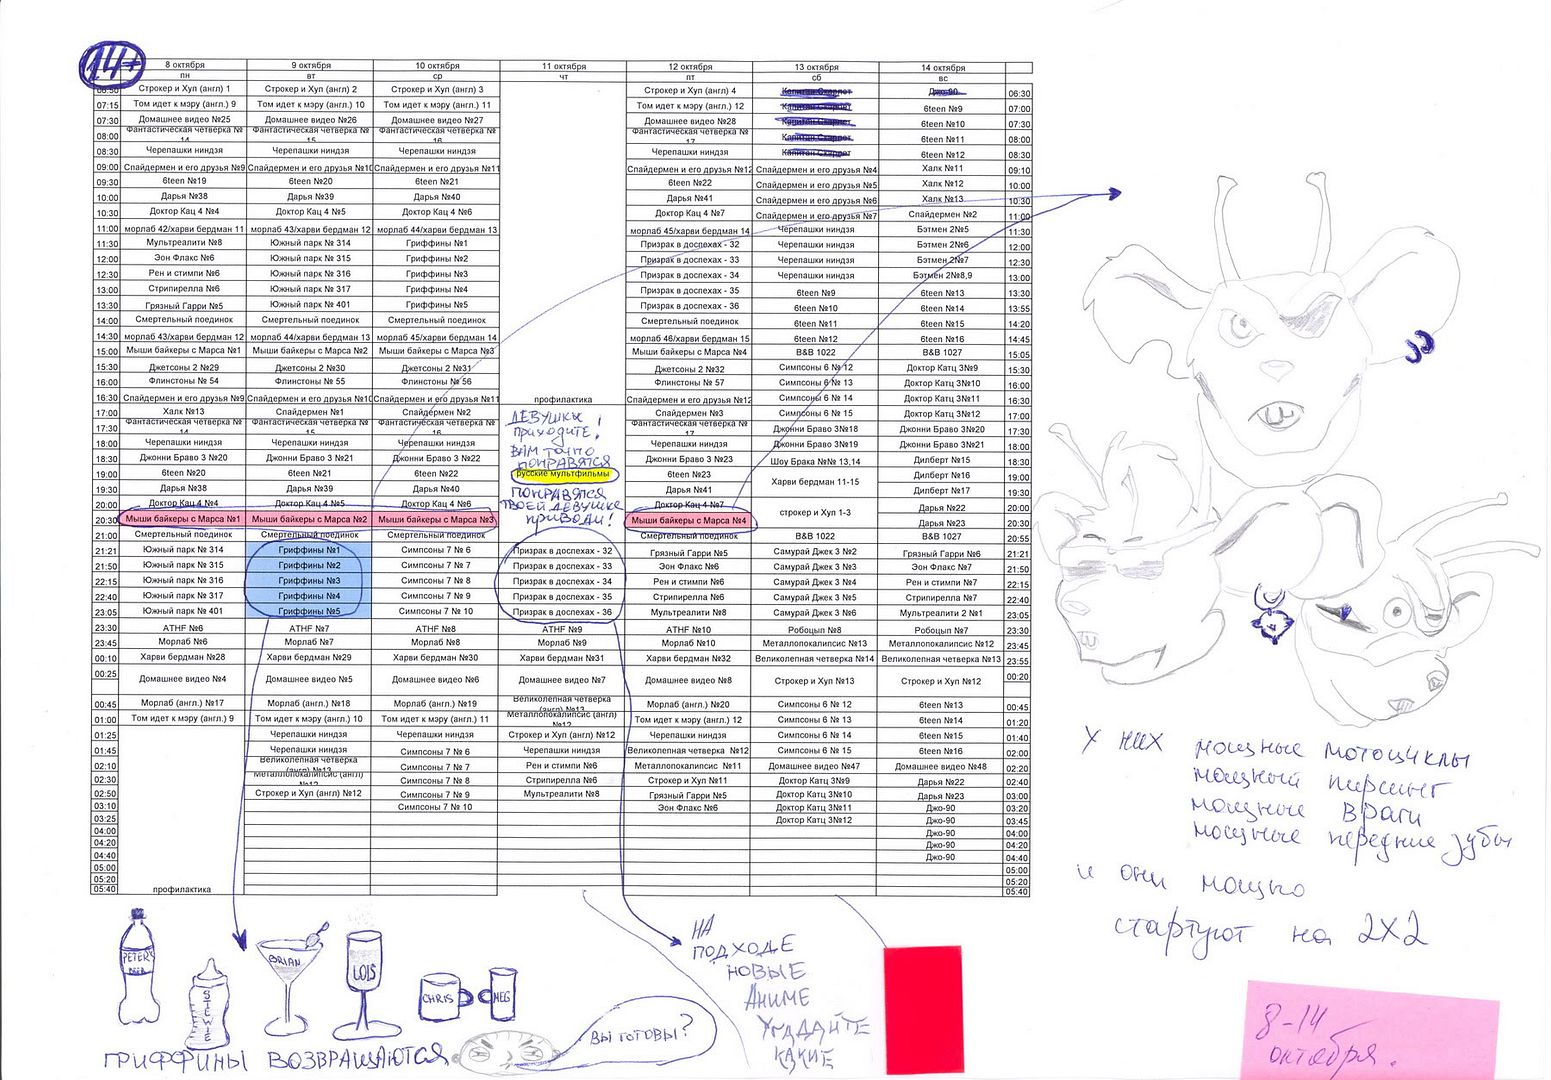 14+
8 октября 9 октября 10 октября 11 октября 12 октября 13 октября 14 октября
пн вт ср чт пт сб вс
06:30 Строкер и Хуп (англ) 1 Строкер и Хуп (англ.) 2 Строкер и Хуп (англ.) 3 Строкер и Хуп (англ) 4 Капитан Скарлет Джо-90 06:30
07:15 Том идет к мэру (англ.) 9 Том идет к мэру (англ.) 10 Том идет к мэру (англ.) 11 Том идет к мэру (англ.) 12 Капитан Скарлет 6teen №9 07:00
07:30 Домашнее видео №25 Домашнее видео №26 Домашнее видео №27 Домашнее видео №28 Капитан Скарлет 6teen №10 07:30
08:00 Фантастическая четверка № 14 Фантастическая четверка № 15 Фантастическая четверка № 16 Фантастическая четверка № 17 Капитан Скарлет 6teen №11 08:00
08:30 Черепашки ниндзя Черепашки ниндзя Черепашки ниндзя Черепашки ниндзя Капитан Скарлет 6teen №12 08:30
09:00 Спайдермен и его друзья №9 Спайдермен и его друзья №10 Спайдермен и его друзья №11 Спайдермен и его друзья №12 Спайдермен и его друзья №4 Халк №11 09:10
09:30 6teen №19 6teen №20 6teen №21 6teen №22 Спайдермен и его друзья №5 Халк №12 10:00
10:00 Дарья №38 Дарья №39 Дарья №40 Дарья №41 Спайдермен и его друзья №6 Халк №13 10:30
10:30 Доктор Кац 4 №4 Доктор Кац 4 №5 Доктор Кац 4 №6 Доктор Кац 4 №7 Спайдермен и его друзья №7 Спайдермен №2 11:00
11:00 морлаб 42/харви бердман 11 морлаб 43/харви бердман 12 морлаб 44/харви бердман 13 морлаб 45/харви бердман 14 Черепашки ниндзя Бэтмен 2№5 11:30
11:30 Мультреалити №8 Южный парк № 314 Гриффины №1 Призрак в доспехах - 32 Черепашки ниндзя Бэтмен 2№6 12:00
12:00 Эон Флакс №6 Южный парк № 315 Гриффины №2 Призрак в доспехах - 33 Черепашки ниндзя Бэтмен 2№7 12:30
12:30 Рен и стимпи №6 Южный парк № 316 Гриффины №3 Призрак в доспехах - 34 Черепашки ниндзя Бэтмен 2№8,9 13:00
13:00 Стрипирелла №6 Южный парк № 317 Гриффины №4 Призрак в доспехах - 35 6teen №9 6teen №13 13:30
13:30 Грязный Гарри №5 Южный парк № 401 Гриффины №5 Призрак в доспехах - 36 6teen №10 6teen №14 13:55
14:00 Смертельный поединок Смертельный поединок Смертельный поединок Смертельный поединок 6teen №11 6teen №15 14:20
14:30 морлаб 43/харви бердман 12 морлаб 44/харви бердман 13 морлаб 45/харви бердман 14 морлаб 46/харви бердман 15 6teen №12 6teen №16 14:45
15:00 Мыши байкеры с Марса №1 Мыши байкеры с Марса №2 Мыши байкеры с Марса №3 Мыши байкеры с Марса №4 B&B 1022 B&B 1027 15:05
15:30 Джетсоны 2 №29 Джетсоны 2 №30 Джетсоны 2 №31 Джетсоны 2 №32 Симпсоны 6 № 12 Доктор Катц 3№9 15:30
16:00 Флинстоны № 54 Флинстоны № 55 Флинстоны № 56 Флинстоны № 57 Симпсоны 6 № 13 Доктор Катц 3№10 16:00
16:30 Спайдермен и его друзья №9 Спайдермен и его друзья №10 Спайдермен и его друзья №11 профилактика Спайдермен и его друзья №12 Симпсоны 6 № 14 Доктор Катц 3№11 16:30
17:00 Халк №13 Спайдермен №1 Спайдермен №2 Спайдермен №3 Симпсоны 6 № 15 Доктор Катц 3№12 17:00
17:30 Фантастическая четверка № 14 Фантастическая четверка № 15 Фантастическая четверка № 16 Фантастическая четверка № 17 Джонни Браво 3№18 Джонни Браво 3№20 17:30
18:00 Черепашки ниндзя Черепашки ниндзя Черепашки ниндзя Черепашки ниндзя Джонни Браво 3№19 Джонни Браво 3№21 18:00
18:30 Джонни Браво 3 №20 Джонни Браво 3 №21 Джонни Браво 3 №22 Джонни Браво 3 №23 Шоу Брака №№ 13,14 Дилберт №15 18:30
19:00 6teen №20 6teen №21 6teen №22 русские мультфильмы 6teen №23 Харви бердман 11-15 Дилберт №16 19:00
19:30 Дарья №38 Дарья №39 Дарья №40 Дарья №41 Дилберт №17 19:30
20:00 Доктор Кац 4 №4 Доктор Кац 4 №5 Доктор Кац 4 №6 Доктор Кац 4 №7 строкер и Хуп 1-3 Дарья №22 20:00
20:30 Мыши байкеры с Марса №1 Мыши байкеры с Марса №2 Мыши байкеры с Марса №3 Мыши байкеры с Марса №4 Дарья №23 20:30
21:00 Смертельный поединок Смертельный поединок Смертельный поединок Смертельный поединок B&B 1022 B&B 1027 20:55
21:21 Южный парк № 314 Гриффины №1 Симпсоны 7 № 6 Призрак в доспехах - 32 Грязный Гарри №5 Самурай Джек 3 №2 Грязный Гарри №6 21:21
21:50 Южный парк № 315 Гриффины №2 Симпсоны 7 № 7 Призрак в доспехах - 33 Эон Флакс №6 Самурай Джек 3 №3 Эон Флакс №7 21:50
22:15 Южный парк № 316 Гриффины №3 Симпсоны 7 № 8 Призрак в доспехах - 34 Рен и стимпи №6 Самурай Джек 3 №4 Рен и стимпи №7 22:15
22:40 Южный парк № 317 Гриффины №4 Симпсоны 7 № 9 Призрак в доспехах - 35 Стрипирелла №6 Самурай Джек 3 №5 Стрипирелла №7 22:40
23:05 Южный парк № 401 Гриффины №5 Симпсоны 7 № 10 Призрак в доспехах - 36 Мультреалити №8 Самурай Джек 3 №6 Мультреалити 2 №1 23:05
23:30 ATHF №6 ATHF №7 ATHF №8 ATHF №9 ATHF №10 Робоцып №8 Робоцып №7 23:30
23:45 Морлаб №6 Морлаб №7 Морлаб №8 Морлаб №9 Морлаб №10 Металлопокалипсис №13 Металлопокалипсис №12 23:45
00:10 Харви бердман №28 Харви бердман №29 Харви бердман №30 Харви бердман №31 Харви бердман №32 Великолепная четверка №14 Великолепная четверка №13 23:55
00:25 Домашнее видео №4 Домашнее видео №5 Домашнее видео №6 Домашнее видео №7 Домашнее видео №8 Строкер и Хуп №13 Строкер и Хуп №12 00:20
00:45 Морлаб (англ.) №17 Морлаб (англ.) №18 Морлаб (англ.) №19 Великолепная четверка (англ) №13 Морлаб (англ.) №20 Симпсоны 6 № 12 6teen №13 00:45
01:00 Том идет к мэру (англ.) 9 Том идет к мэру (англ.) 10 Том идет к мэру (англ.) 11 Металлопокалипсис (англ) №12 Том идет к мэру (англ.) 12 Симпсоны 6 № 13 6teen №14 01:20
01:25 Черепашки ниндзя Черепашки ниндзя Строкер и Хуп (англ) №12 Черепашки ниндзя Симпсоны 6 № 14 6teen №15 01:40
01:45 Черепашки ниндзя Симпсоны 7 № 6 Черепашки ниндзя Великолепная четверка №12 Симпсоны 6 № 15 6teen №16 02:00
02:10 Великолепная четверка (англ) №13 Симпсоны 7 № 7 Рен и стимпи №6 Металлопокалипсис №11 Домашнее видео №47 Домашнее видео №48 02:20
02:30 Металлопокалипсис (англ) №12 Симпсоны 7 № 8 Стрипирелла №6 Строкер и Хуп №11 Доктор Катц 3№9 Дарья №22 02:40
02:50 Строкер и Хуп (англ) №12 Симпсоны 7 № 9 Мультреалити №8 Грязный Гарри №5 Доктор Катц 3№10 Дарья №23 03:00
03:10 Симпсоны 7 № 10 Эон Флакс №6 Доктор Катц 3№11 Джо-90 03:20
03:25 Доктор Катц 3№12 Джо-90 03:45
04:00 Джо-90 04:00
04:20 Джо-90 04:20
04:40 Джо-90 04:40
05:00 05:00
05:20 05:20
05:40 профилактика 05:40
ДЕВУШКИ
ПРИХОДИТЕ!
ВАМ ТОЧНО
ПОНРАВЯТСЯ
ПОНРАВЯТСЯ
ТВОЕЙ ДЕВУШКЕ
ПРИВОДИ!
У них мощные мотоциклы
мощный пирсинг
мощные враги
мощные передние зубы
и они мощно
стартуют на 2Х2
PETER'S
BEER
STEWIE
BRIAN
LOIS
CHRIS
MEG
ГРИФФИНЫ ВОЗВРАЩАЮТСЯ
ВЫ ГОТОВЫ?
НА
ПОДХОДЕ
НОВЫЕ
АНИМЕ
УГАДАЙТЕ
КАКИЕ
8-14
октября.